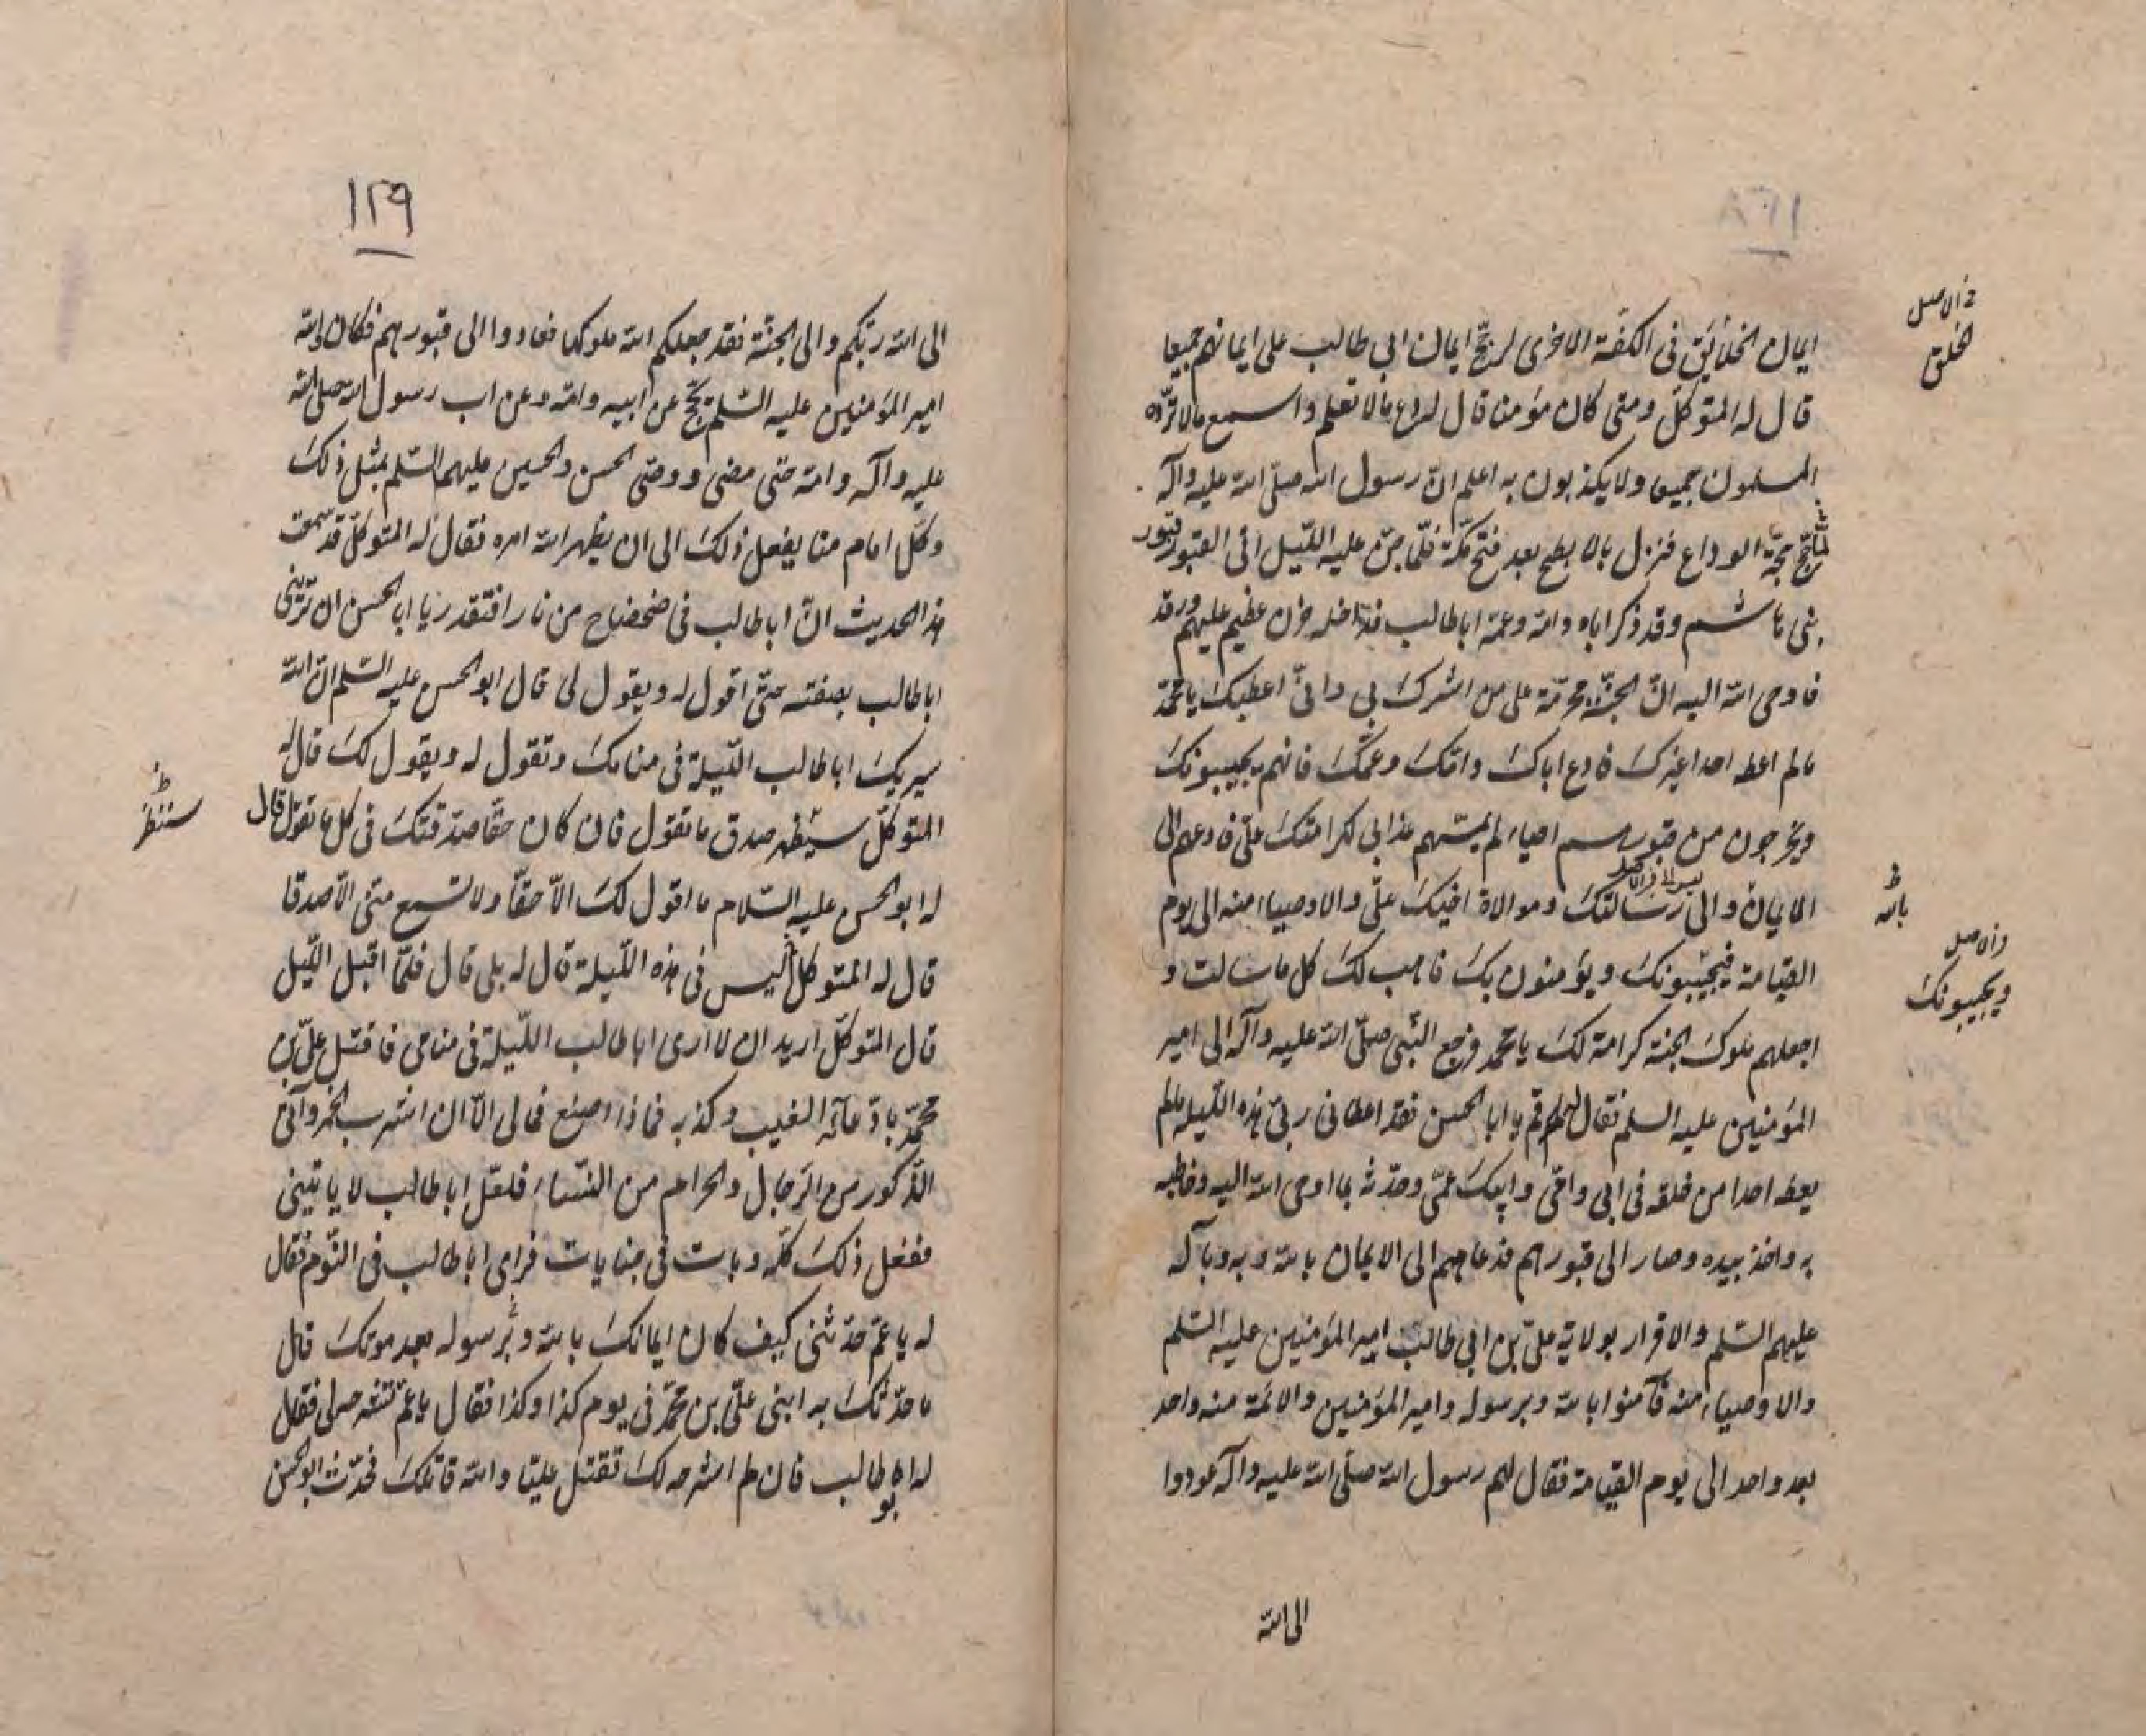 ايمان الخلايق فى الكفّة الاخرى لرجّح ايمان ابى طالب على ايمانهم جميعا
قال له المتوكّل ومتى كان مؤمنا قال له دع مالا تعلم واسمع مالا تردّه
المسلمون جميعا ولا يكذبون به اعلم انّ رسول الله صلّى الله عليه وآله
لمّا حجّ حجّة الوداع فنزل بالابطح بعد فتح مكّة فلمّا جنّ عليه اللّيل اتى القبور قبور
بنى هاشم وقد ذكر اباه وامّه وعمّه اباطالب فداخله حزن عظيم عليهم ورقد
فاوحى الله اليه انّ الجنّة محرّمة على من اشرك بى وانّى اعطيك يا محمّد
مالم اعطه احدا غيرك فادع اباك وامّك وعمّك فانهم يجيبونك
ويخرجون من قبورهم احياء لم يمسّهم عذابى لكرامتك علىّ فادعهم الى
الايمان والى رسالتك وموالاة اخيك علىّ والاوصياء منه الى يوم
القيامة فيجيبونك ويؤمنون بك فاهب لك كل ما سالت و
اجعلهم ملوك الجنة كرامة لك يا محمد فرجع النّبى صلّى الله عليه وآله الى امير
المؤمنين عليه السلم فقال له قم يا ابا الحسن فقد اعطانى ربّى هذه اللّيلة مالم
يعطه احدا من خلقه فى ابى وامّى وابيك عمّى وحدّثه بما اوحى الله اليه وخاطبه
به واخذ بيده وصار الى قبورهم فدعاهم الى الايمان بالله وبه وبآله
عليهم السّلم والاقرار بولاية علىّ بن ابى طالب امير المؤمنين عليه السّلم
والاوصياء منه فآمنوا بالله وبرسوله وامير المؤمنين والائمّة منه واحد
بعد واحد الى يوم القيامة فقال لهم رسول الله صلّى الله عليه وآله عودوا
الى الله
فى الاصل
الخلق
ظ
بالله
فى الاصل
ويجيبونك
١٢٩
الى الله ربّكم والى الجنّة فقد جعلكم الله ملوكها فعادوا الى قبورهم فكان والله
امير المؤمنين عليه السّلم يحجّ عن ابيه وامّه وعن اب رسول الله صلى الله
عليه وآله وامّه حتى مضى ووصّى الحسن والحسين عليهما السّلم بمثل ذلك
وكلّ امام منّا يفعل ذلك الى ان يظهر الله امره فقال له المتوكّل قد سمعت
هذا الحديث انّ اباطالب فى ضحضاح من نار افتقدر يا ابا الحسن ان ترينى
اباطالب بصفته حتّى اقول له ويقول لى قال ابو الحسن عليه السّلم انّ الله
سيريك اباطالب اللّيلة فى منامك وتقول له ويقول لك قال له
المتوكّل سيظهر صدق ما تقول فان كان حقّا صدّقتك فى كل ما تقول قال
له ابو الحسن عليه السّلام ما اقول لك الاّ حقّا ولا تسمع منّى الاّ صدقا
قال له المتوكل أليس فى هذه اللّيلة قال له بلى قال فلمّا اقبل اللّيل
قال المتوكّل اريد ان لا ارى اباطالب اللّيلة فى منامى فاقتل علىّ بن
محمّد بادّعائه الغيب وكذبه فماذا اصنع فمالى الاّ ان اشرب الخمر وآتى
الذّكور من الرّجال والحرام من النّساء فلعّل اباطالب لا ياتينى
ففعل ذلك كلّه وبات فى جنابات فراى اباطالب فى النّوم فقال
له يا عمّ حدّثنى كيف كان ايمانك بالله وبرسوله بعد موتك قال
ما حدّثك به ابنى علىّ بن محمّد فى يوم كذا وكذا فقال يا عمّ تشرحه لى فقال
له ابو طالب فان لم اشرحه لك تقتل عليّا والله قاتلك فحدّثه ابو الحسن
ظ
سننظر